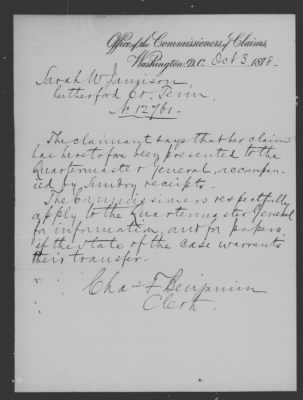 Office of the Commissioners of Claims,
Washington, D.C. Oct 3, 1878-
Sarah W Jamison
Rutherford Co. Tenn.
No 12761-
The claimant says that her claim
has heretofore been presented to the
Quartermaster General, accompan-
ied by sundry receipts-
The Commissioners respectfully
apply to the Quartermaster General
for information, and for papers,
if the state of the case warrants
their transfer-
Chas F Benjamin
Clerk.